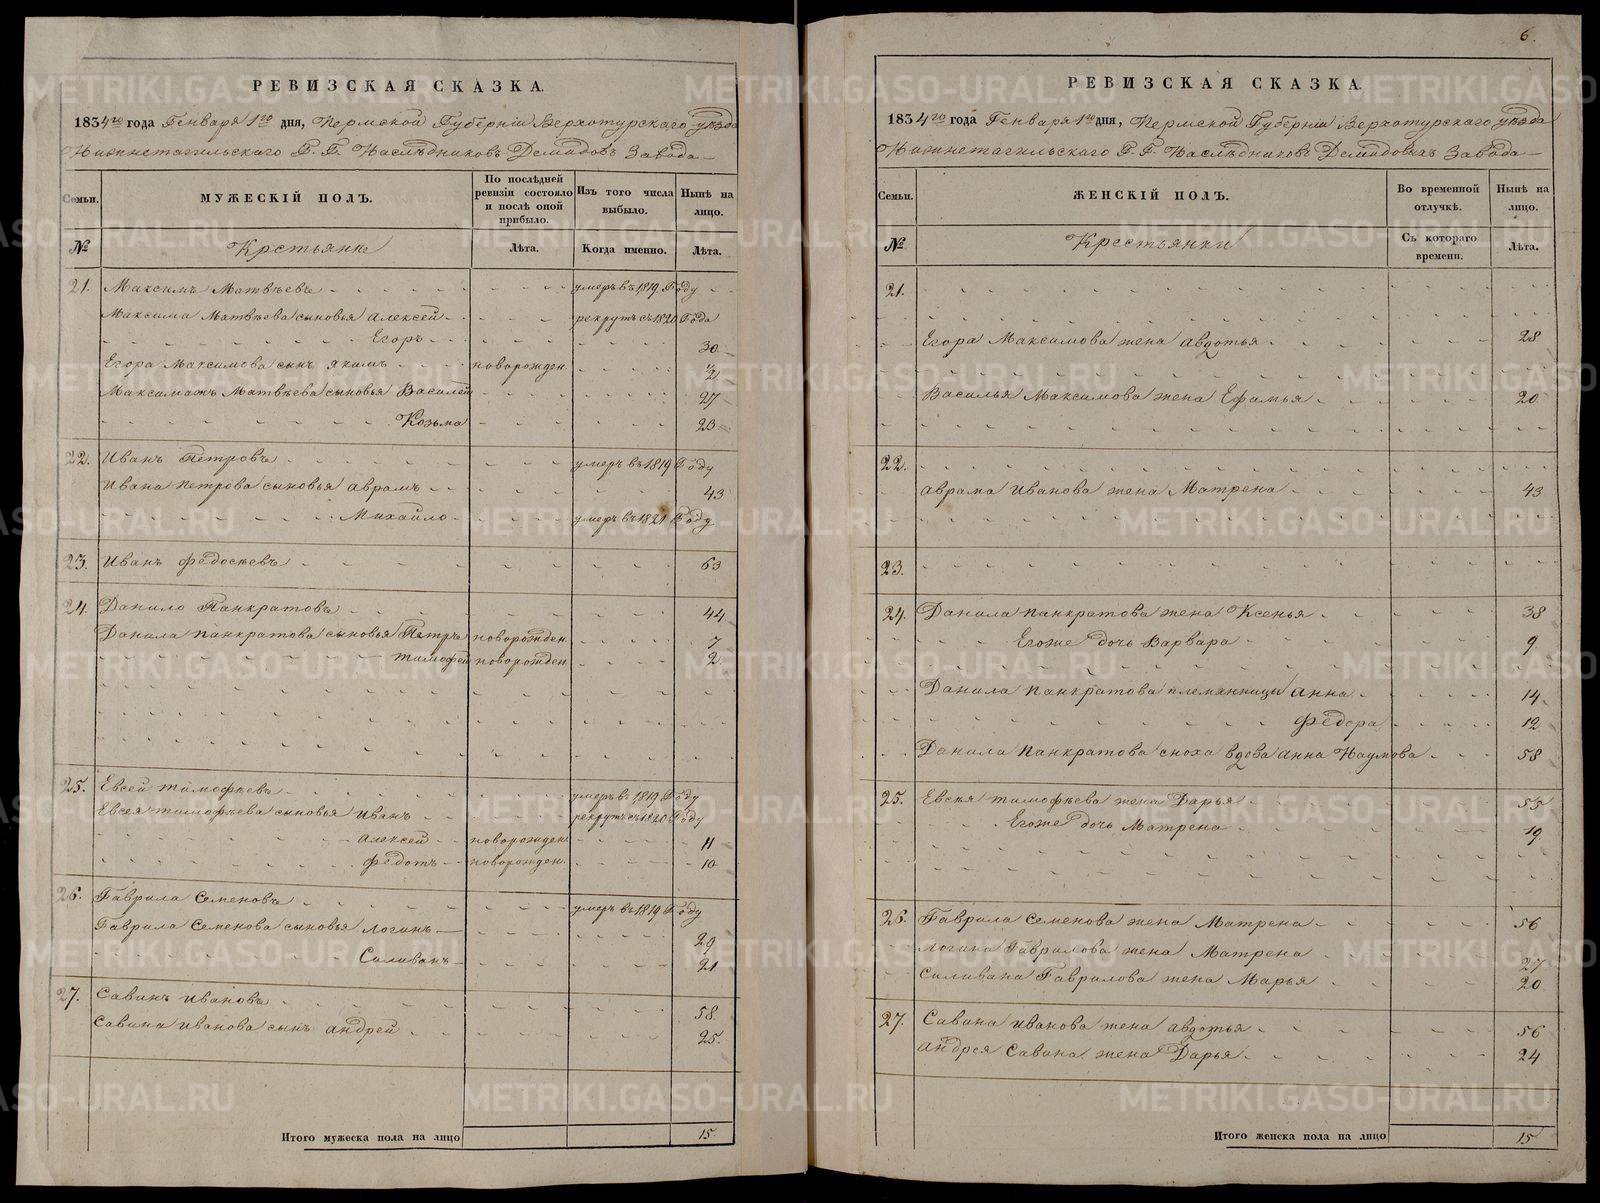 РЕВИЗСКАЯ СКАЗКА.
1834го года Генваря 1го дня, Пермской Губернiи Верхотурскаго уѣзда
Нижнетагильскаго Г. Г. Наслѣдниковъ Демидовъ Завода
Семьи.
МУЖЕСКIЙ ПОЛЪ.
По послѣдней ревизiи состояло и послѣ оной прибыло.
Изъ того числа выбыло.
Нынѣ на лицо.
№
Крстьяне
Лѣта.
Когда именно.
Лѣта.
21. Максимъ Матвѣевъ умеръ въ 1819 Году
Максима Матвѣева сыновья Алексей рекрутъ съ 1820 Года
Егоръ 30
Егора Максимова сынъ Якимъ новорожден. 1/2
Максимажъ Матвѣева сыновья Василей 27
Козьма 23
22. Иванъ Петровъ умеръ въ 1819 Году
Ивана Петрова сыновья Аврамъ 43
Михайло умеръ въ 1821 Году
23. Иванъ Федосѣевъ 63
24. Данило Панкратовъ 44
Данила Панкратова сыновья Петръ новорожден. 7
Тимофей новорожден. 2
25. Евсей Тимофѣевъ умеръ въ 1819 Году
Евсея Тимофѣева сыновья Иванъ рекрутъ съ 1820 Году
Алексей новорожден. 11
Федотъ новорожден. 10
26. Гаврила Семеновъ умеръ въ 1819 Году
Гаврила Семенова сыновья Логинъ 29
Саливанъ 21
27. Савинъ Ивановъ 58
Савина Иванова сынъ Андрей 25.
Итого мужеска пола на лицо 15
6.
РЕВИЗСКАЯ СКАЗКА.
1834го года Генваря 1го дня, Пермской Губернiи Верхотурскаго уѣзда
Нижнетагильскаго Г. Г. Наслѣдниковъ Демидовыхъ Завода
Семьи.
ЖЕНСКIЙ ПОЛЪ.
Во временной отлучкѣ.
Нынѣ на лицо.
№
Крестьянки
Съ котораго времени.
Лѣта.
21.
Егора Максимова жена Авдотья 28
Василья Максимова жена Ефимья 20
22.
Аврама Иванова жена Матрена 43
23.
24. Данила Панкратова жена Ксенья 38
Егоже дочь Варвара 9
Данила Панкратова племянницы Анна 14
Федора 12
Данила Панкратова сноха вдова Анна Наумова 58
25. Евсѣя Тимофѣева жена Дарья 55
Егоже дочь Матрена 19
26. Гаврила Семенова жена Матрена 56
Логина Гаврилова жена Матрена 27
Силивана Гаврилова жена Марья 20
27. Савина Иванова жена Авдотья 56
Андрея Савина жена Дарья 24
Итого женска пола на лицо 15
METRIKI.GASO-URAL.RU